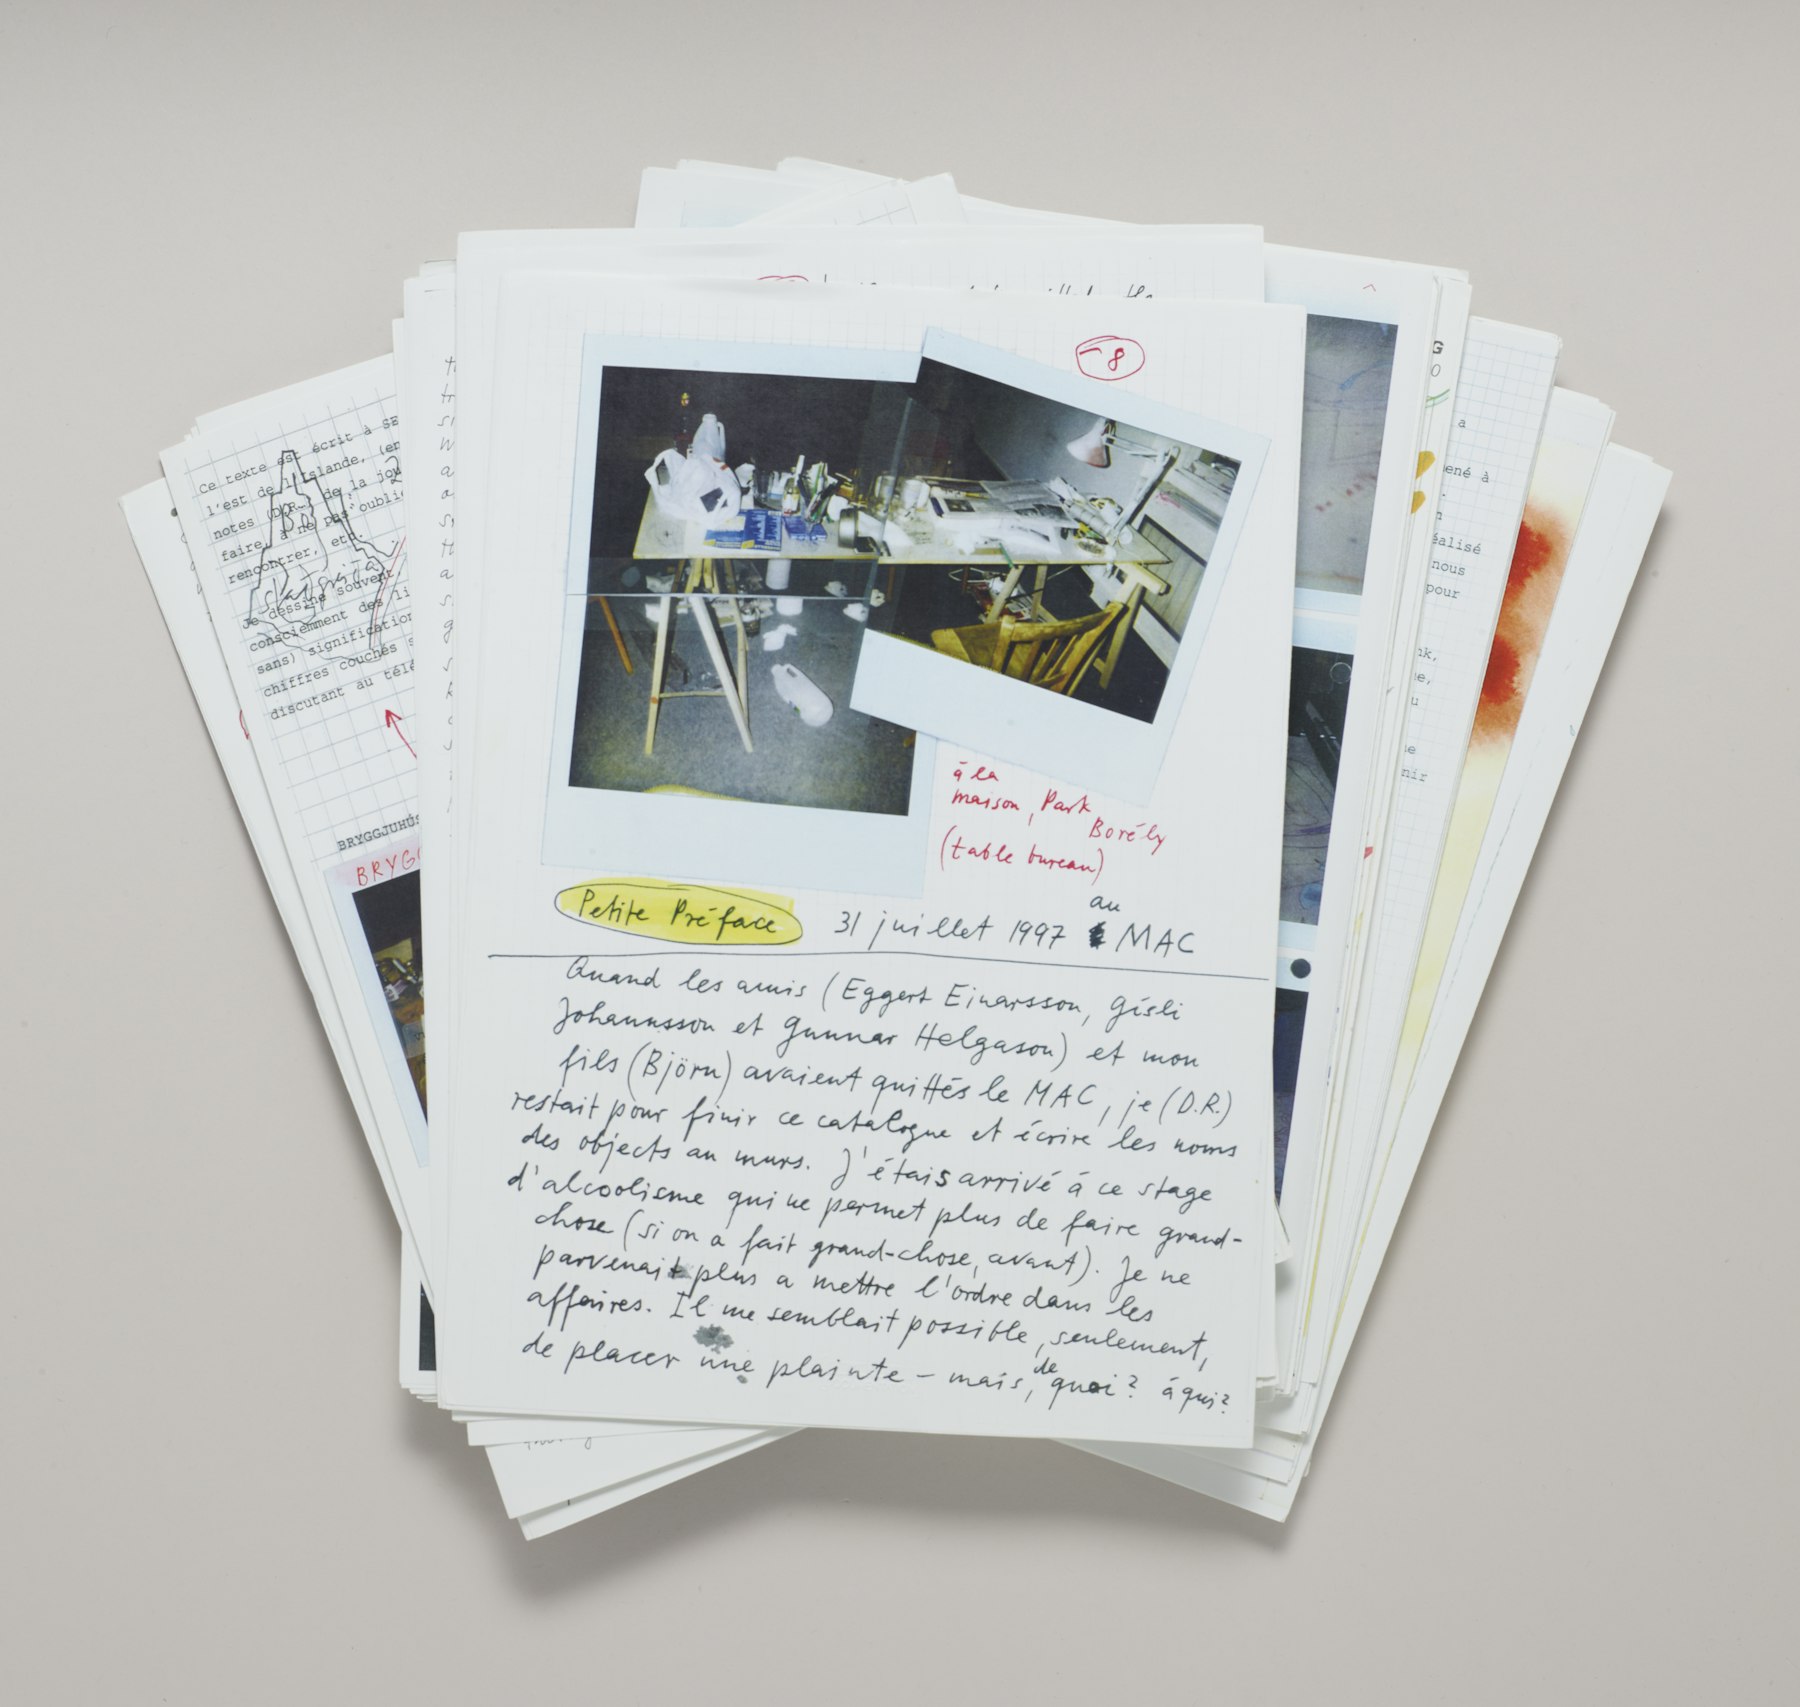 -8
à la
maison, Park
Borély
(table bureau)
Petite Préface 31 juillet 1997 au MAC
Quand les amis (Eggert Einarsson, Gísli
Johannsson et Gunnar Helgason) et mon
fils (Björn) avaient quittés le MAC, je (D.R.)
restait pour finir ce catalogue et écrire les noms
des objects au murs. J'étais arrivé à ce stage
d'alcoolisme qui ne permet plus de faire grand-
chose (si on a fait grand-chose, avant). Je ne
parvenait plus a mettre l'ordre dans les
affaires. Il me semblait possible, seulement,
de placer une plainte – mais, de quoi? à qui?
Ce texte est écrit à SE
l'est de l'Islande, (en
notes (D.R. de la jou
faire, à ne pas oublie
rencontrer, etc.
Je dessine souvent,
consciemment des li
sans) signification
chiffres couchés s
discutant au télé
BRYGGJUHÚS
BRYGG
G
0
a
ené à
n
éalisé
nous
pour
nk,
e,
u
e
nir